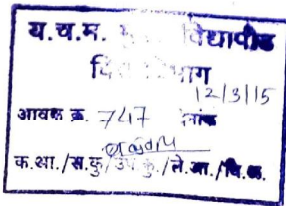 य.च.म. मुक्त विद्यापीठ
वित्त विभाग
12/3/15
आवक क्र. 747 दिनांक
क.आ./स.कु./उप कु./ले.आ./वि.अ.